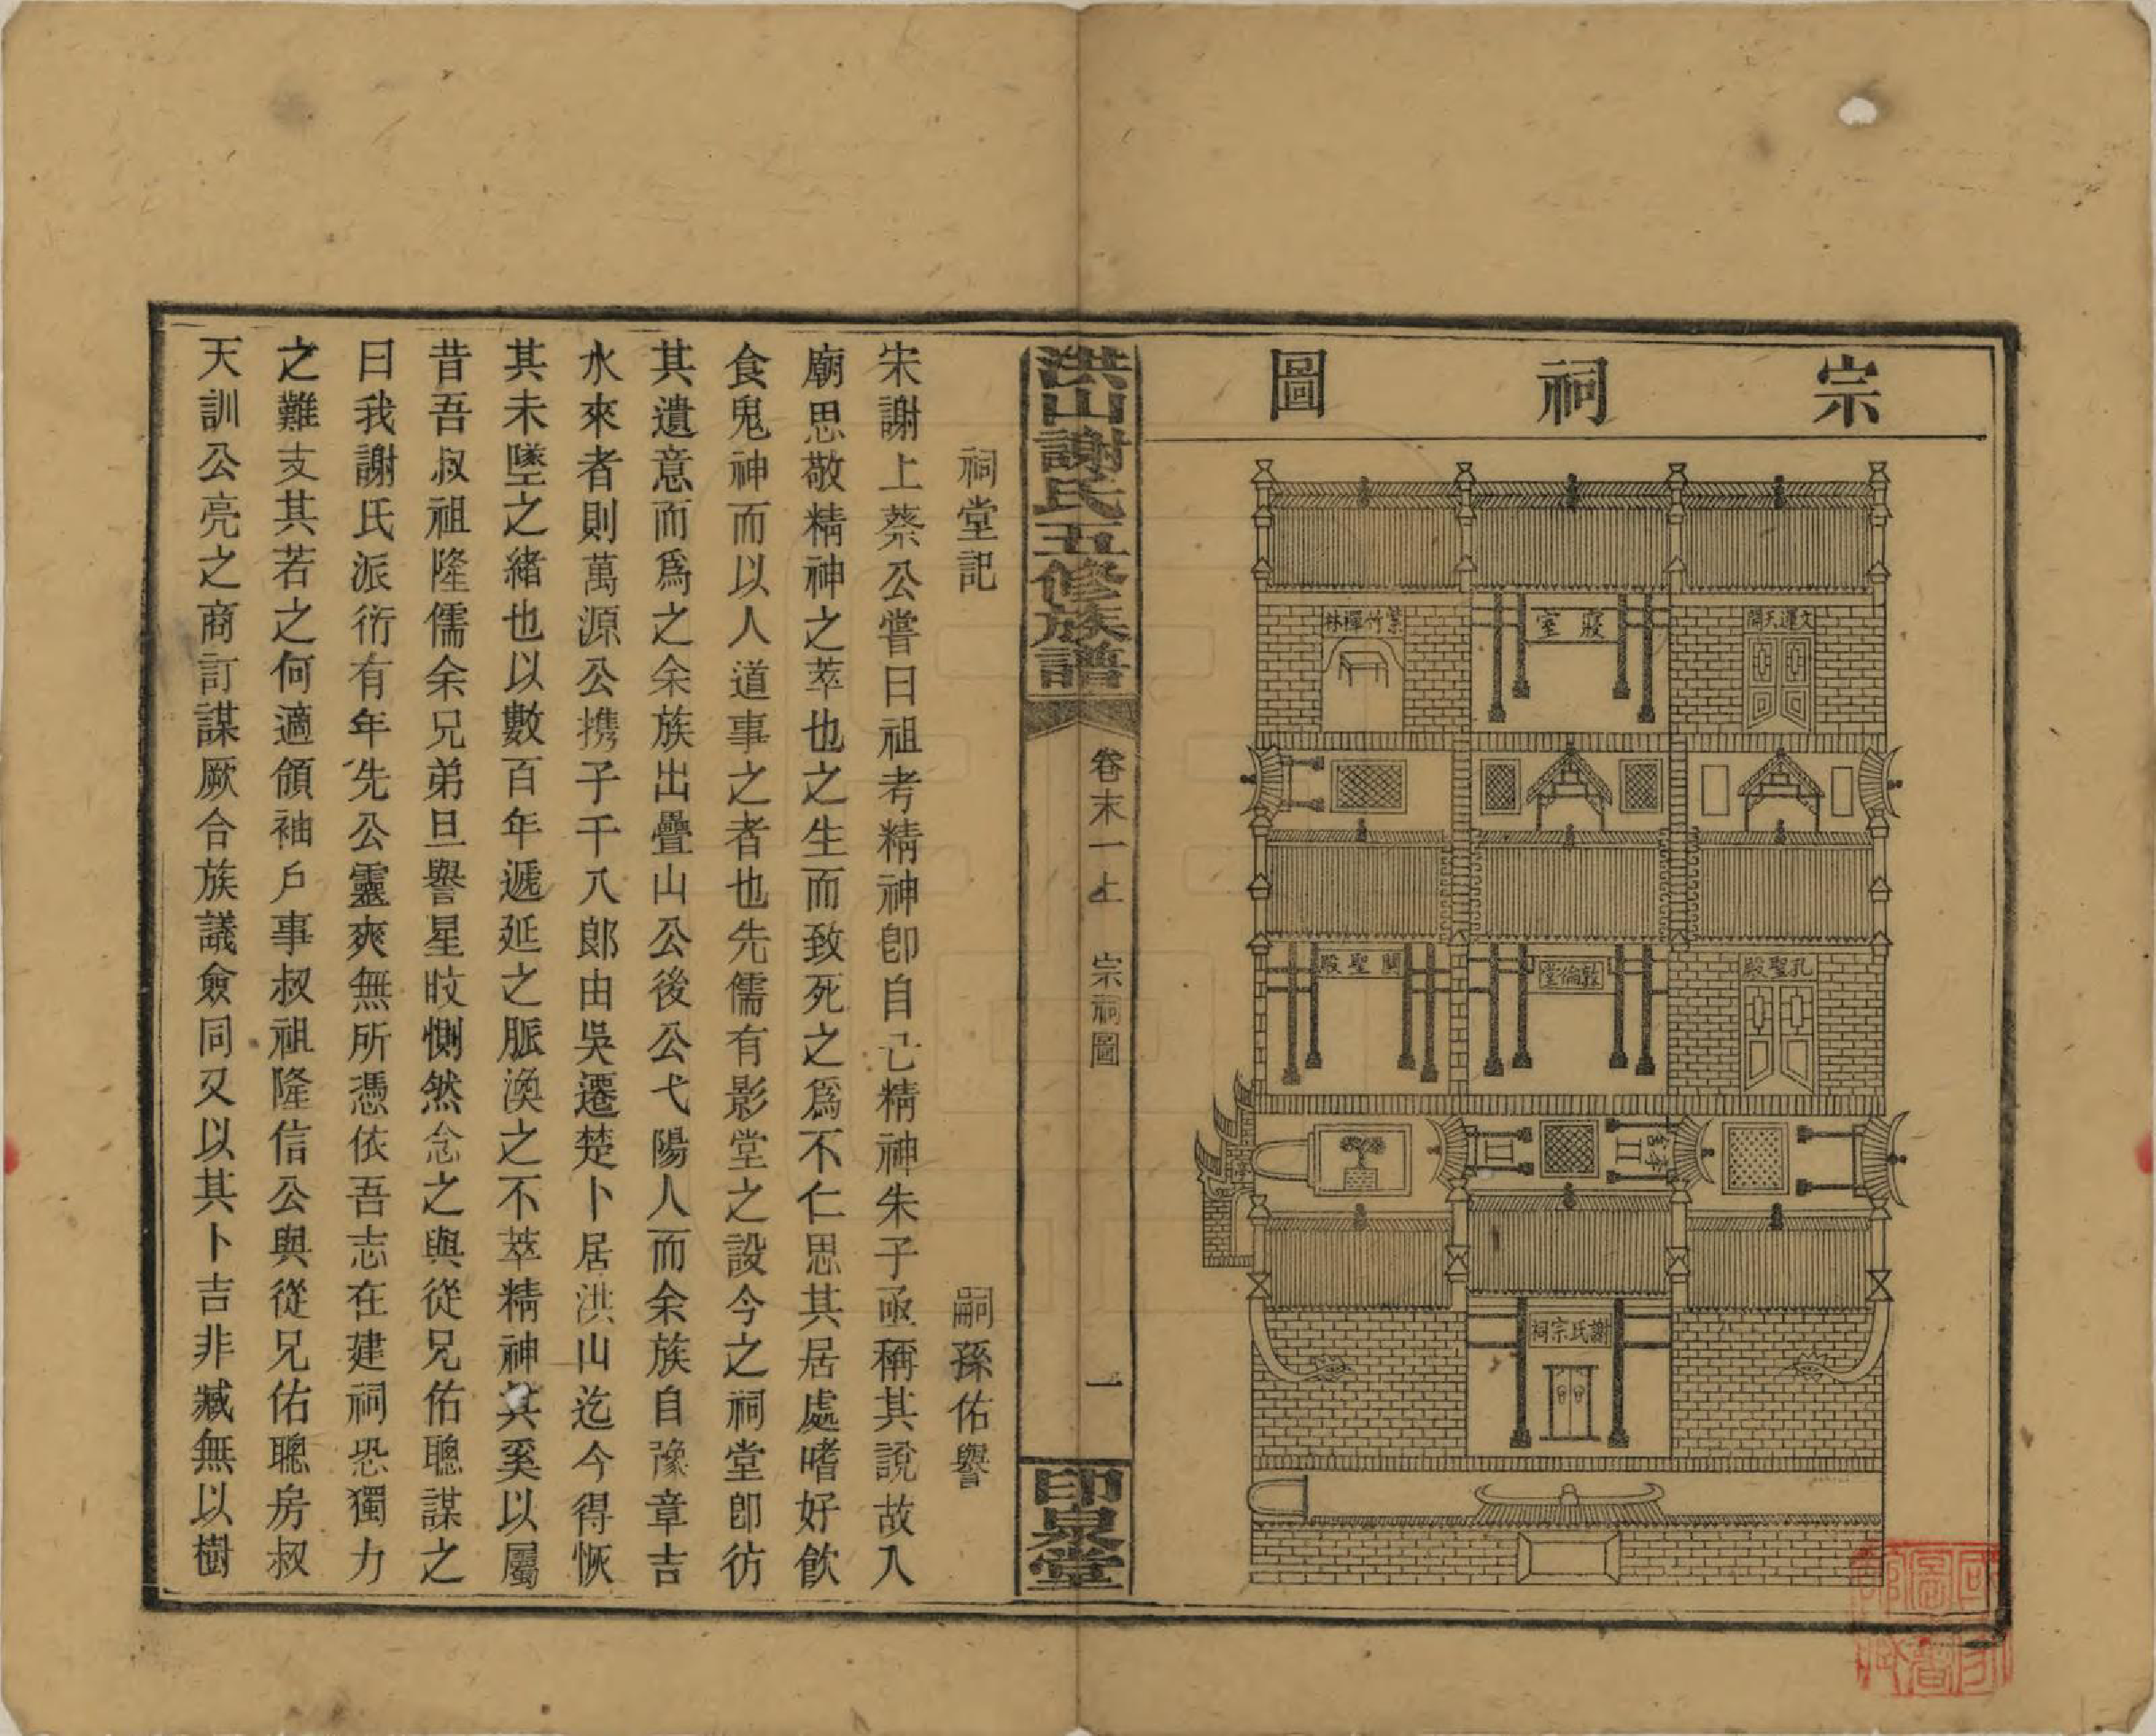 宗祠圖
文運天開
寢室
紫竹禪林
孔聖殿
敦倫堂
關聖殿
謝氏宗祠
洪山謝氏五修族譜
卷末一上　宗祠圖
一
印泉堂
祠堂記　嗣孫佑譽
宋謝上蔡公嘗曰祖考精神卽自己精神朱子亟稱其說故入
廟思敬精神之萃也之生而致死之爲不仁思其居處嗜好飮
食鬼神而以人道事之者也先儒有影堂之設今之祠堂卽彷
其遺意而爲之余族出疊山公後公弋陽人而余族自豫章吉
水來者則萬源公携子千八郞由吳遷楚卜居洪山迄今得恢
其未墜之緒也以數百年遞延之脈渙之不萃精神其奚以屬
昔吾叔祖隆儒余兄弟旦譽星旼惻然念之與從兄佑聰謀之
曰我謝氏派衍有年先公靈爽無所憑依吾志在建祠恐獨力
之難支其若之何適領袖戶事叔祖隆信公與從兄佑聰房叔
天訓公亮之商訂謀厥合族議僉同又以其卜吉非臧無以樹